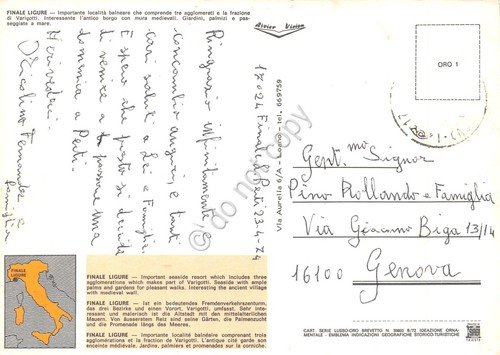 FINALE LIGURE — Importante località balneare che comprende tre agglomerati e la frazione
di Varigotti. Interessante l'antico borgo con mura medievali. Giardini, palmizi e pas-
seggiate a mare.
17024 Finale 23-4-74
Ringrazio infinitamente e
concambio auguri, e tanti
cari saluti a Lei e Famiglia.
E spero che presto si decida
di venire a passare una
domenica a
Arrivederci
Nicolino Fernandez e
Famiglia
Rivier Vision
Via Aurelia 6/A - tel. 669759
ORO 1
Gent.mo Signor
Pino Rollando e Famiglia
Via Giacomo Biga 13/14
16100 Genova
do not copy
FINALE LIGURE
FINALE LIGURE — Important seaside resort which includes three
agglomerations which makes part of Varigotti. Seaside with ample
palms and gardens for pleasant walks. Interesting the ancient village
with medieval wall.
FINALE LIGURE — Ist ein bedeutendes Fremdenverkehrszentrum,
das drei Bezirke und einen Vorort, Varigotti, umfast. Sehr inter-
essant und malerisch ist die Altstadt mit den mittelalterlichen
Mauern. Von äusserstem Reiz sind seine Gärten, die Palmenzucht
und die Promenade längs des Meeres.
FINALE LIGURE — Importante localité balnéaire comprenant trois
agglomérations et la fraction de Varigotti. L'antique cité garde son
enceinte médiévale. Jardins, palmiers et promenades sur la corniche.
CART. SERIE LUSSO-ORO BREVETTO N. 38603 8/72 IDEAZIONE ORNA-
MENTALE - EMBLEMA INDICAZIONI GEOGRAFICHE STORICO-TURISTICHE